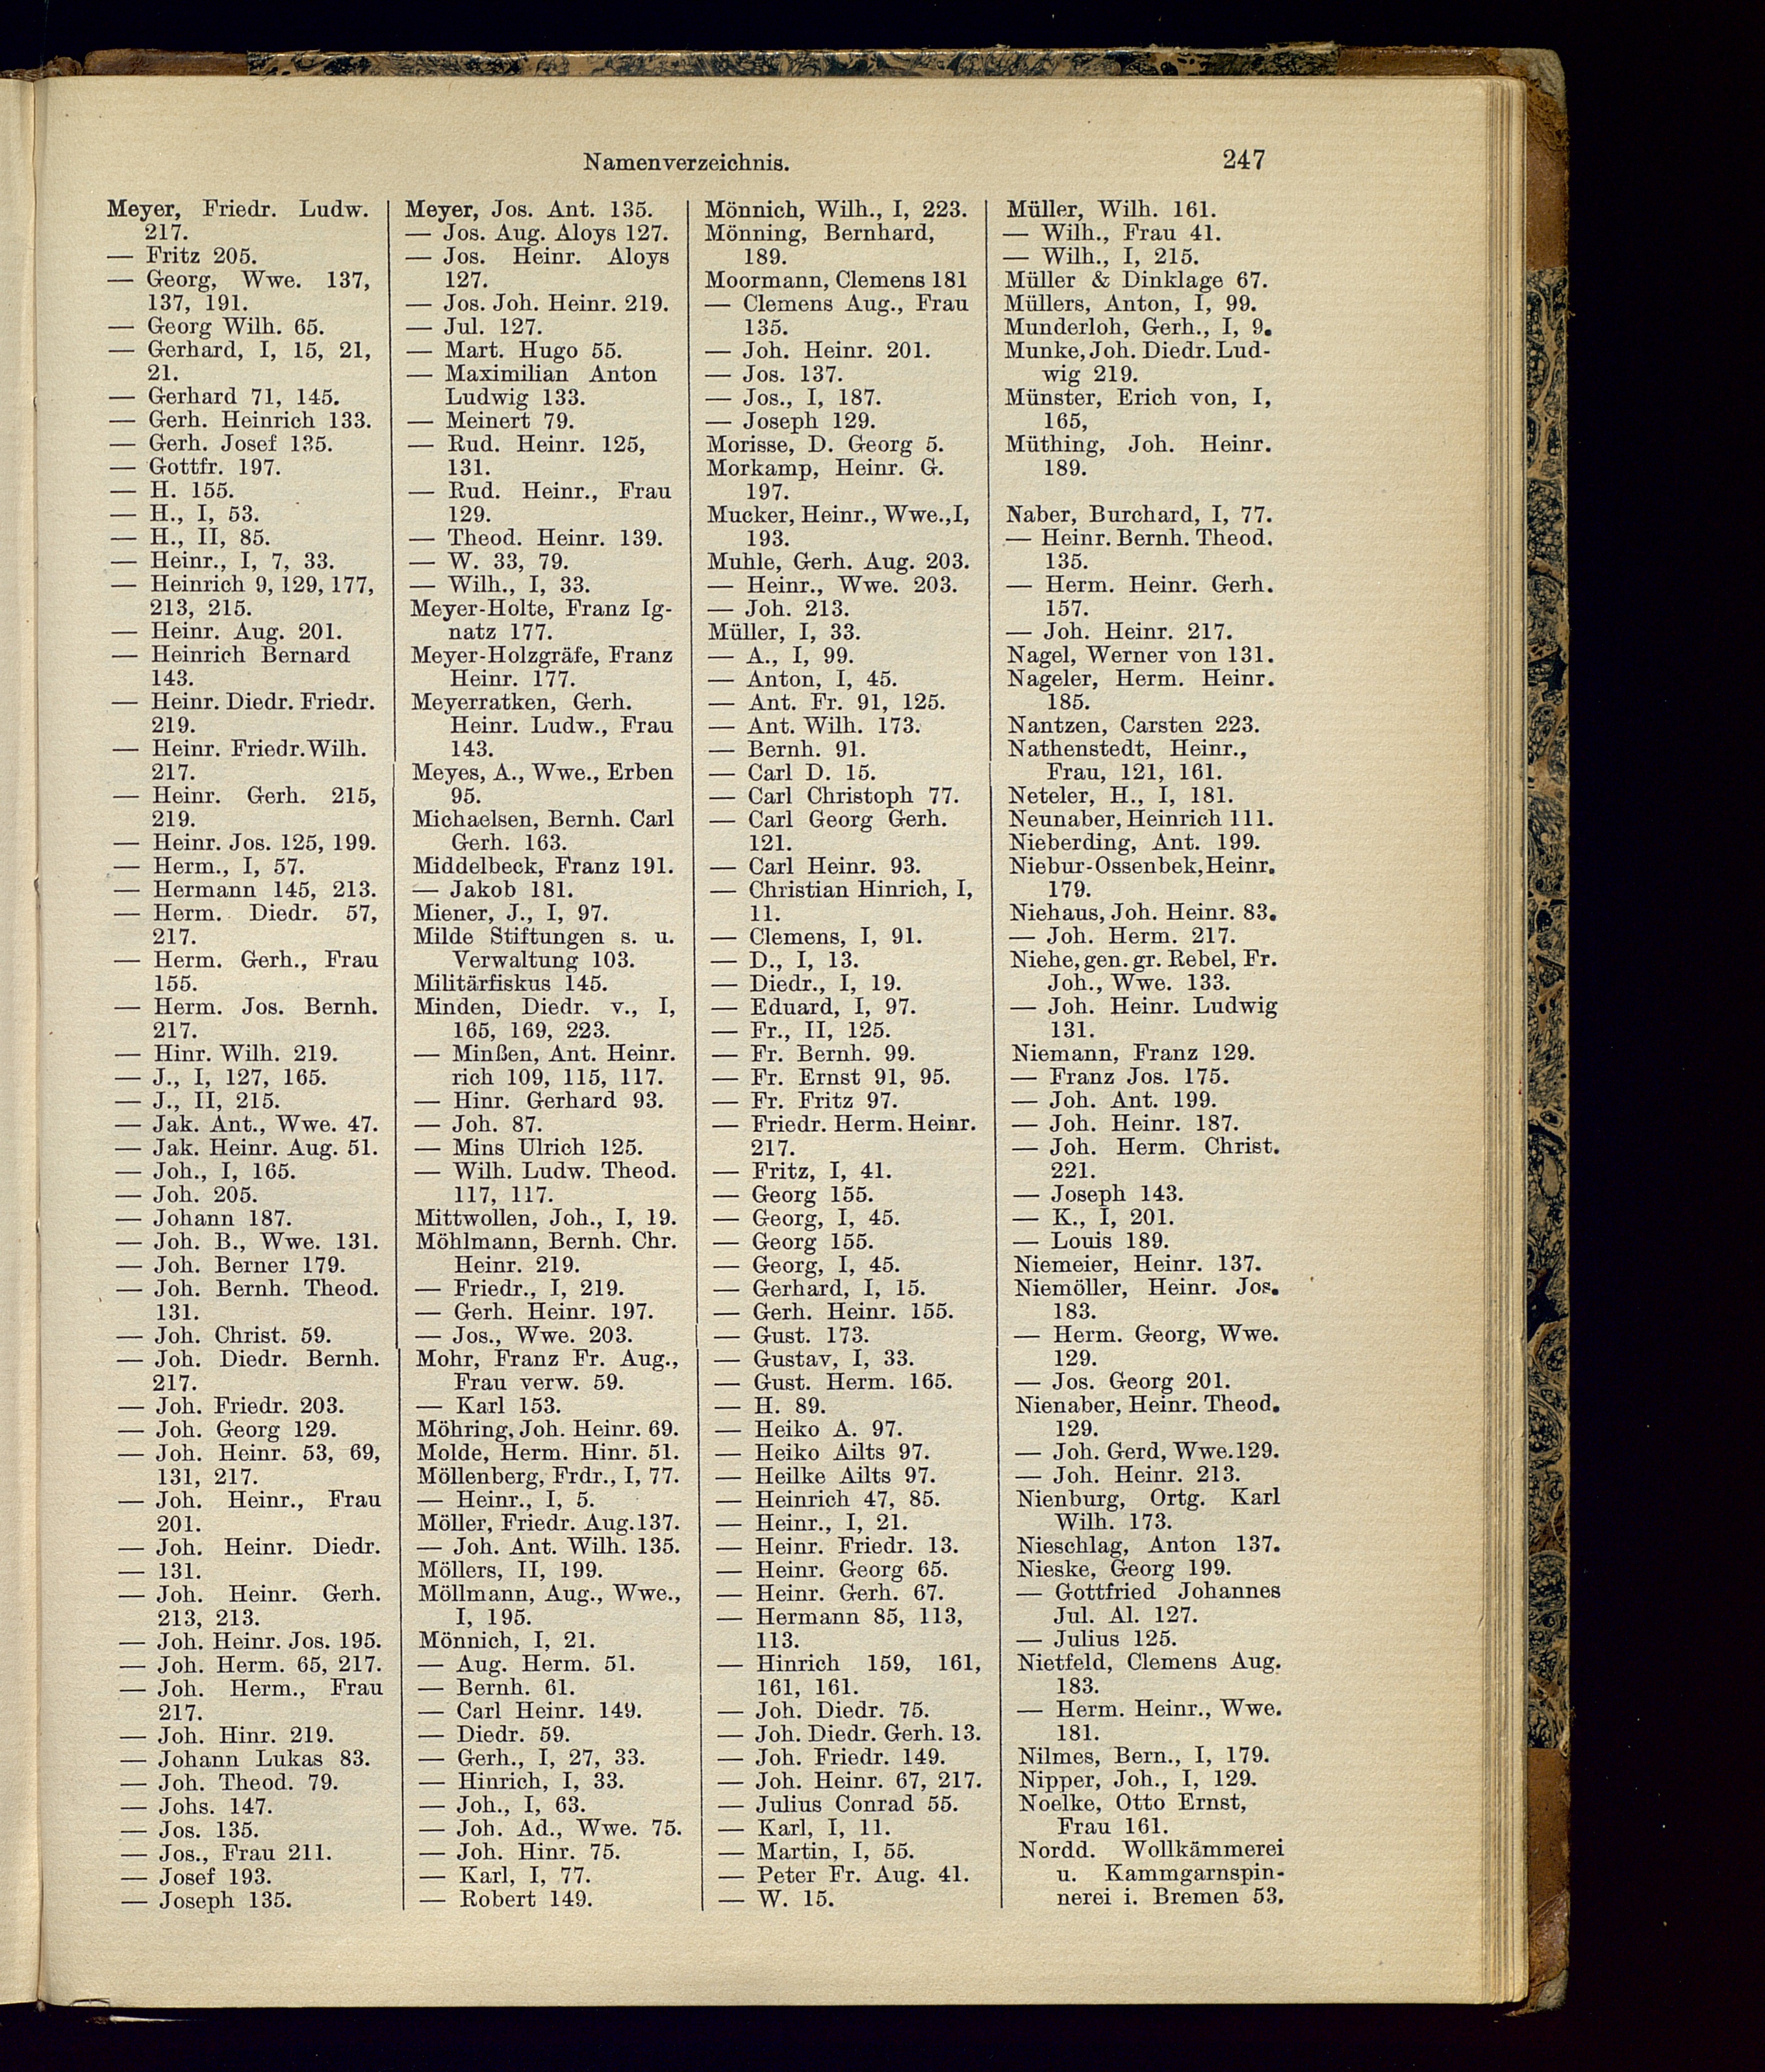 Namenverzeichnis. 247
Meyer, Friedr. Ludw.
217.
— Fritz 205.
— Georg, Wwe. 137,
137, 191.
— Georg Wilh. 65.
— Gerhard, I, 15, 21,
21.
— Gerhard 71, 145.
— Gerh. Heinrich 133.
— Gerh. Josef 135.
— Gottfr. 197.
— H. 155.
— H., I, 53.
— H., II, 85.
— Heinr., I, 7, 33.
— Heinrich 9, 129, 177,
213, 215.
— Heinr. Aug. 201.
— Heinrich Bernard
143.
— Heinr. Diedr. Friedr.
219.
— Heinr. Friedr. Wilh.
217.
— Heinr. Gerh. 215,
219.
— Heinr. Jos. 125, 199.
— Herm., I, 57.
— Hermann 145, 213.
— Herm. Diedr. 57,
217.
— Herm. Gerh., Frau
155.
— Herm. Jos. Bernh.
217.
— Hinr. Wilh. 219.
— J., I, 127, 165.
— J., II, 215.
— Jak. Ant., Wwe. 47.
— Jak. Heinr. Aug. 51.
— Joh., I, 165.
— Joh. 205.
— Johann 187.
— Joh. B., Wwe. 131.
— Joh. Berner 179.
— Joh. Bernh. Theod.
131.
— Joh. Christ. 59.
— Joh. Diedr. Bernh.
217.
— Joh. Friedr. 203.
— Joh. Georg 129.
— Joh. Heinr. 53, 69,
131, 217.
— Joh. Heinr., Frau
201.
— Joh. Heinr. Diedr.
— 131.
— Joh. Heinr. Gerh.
213, 213.
— Joh. Heinr. Jos. 195.
— Joh. Herm. 65, 217.
— Joh. Herm., Frau
217.
— Joh. Hinr. 219.
— Johann Lukas 83.
— Joh. Theod. 79.
— Johs. 147.
— Jos. 135.
— Jos., Frau 211.
— Josef 193.
— Joseph 135.
Meyer, Jos. Ant. 135.
— Jos. Aug. Aloys 127.
— Jos. Heinr. Aloys
127.
— Jos. Joh. Heinr. 219.
— Jul. 127.
— Mart. Hugo 55.
— Maximilian Anton
Ludwig 133.
— Meinert 79.
— Rud. Heinr. 125,
131.
— Rud. Heinr., Frau
129.
— Theod. Heinr. 139.
— W. 33, 79.
— Wilh., I, 33.
Meyer-Holte, Franz Ig-
natz 177.
Meyer-Holzgräfe, Franz
Heinr. 177.
Meyerratken, Gerh.
Heinr. Ludw., Frau
143.
Meyes, A., Wwe., Erben
95.
Michaelsen, Bernh. Carl
Gerh. 163.
Middelbeck, Franz 191.
— Jakob 181.
Miener, J., I, 97.
Milde Stiftungen s. u.
Verwaltung 103.
Militärfiskus 145.
Minden, Diedr. v., I,
165, 169, 223.
— Minßen, Ant. Heinr.
rich 109, 115, 117.
— Hinr. Gerhard 93.
— Joh. 87.
— Mins Ulrich 125.
— Wilh. Ludw. Theod.
117, 117.
Mittwollen, Joh., I, 19.
Möhlmann, Bernh. Chr.
Heinr. 219.
— Friedr., I, 219.
— Gerh. Heinr. 197.
— Jos., Wwe. 203.
Mohr, Franz Fr. Aug.,
Frau verw. 59.
— Karl 153.
Möhring, Joh. Heinr. 69.
Molde, Herm. Hinr. 51.
Möllenberg, Frdr., I, 77.
— Heinr., I, 5.
Möller, Friedr. Aug. 137.
— Joh. Ant. Wilh. 135.
Möllers, II, 199.
Möllmann, Aug., Wwe.,
I, 195.
Mönnich, I, 21.
— Aug. Herm. 51.
— Bernh. 61.
— Carl Heinr. 149.
— Diedr. 59.
— Gerh., I, 27, 33.
— Hinrich, I, 33.
— Joh., I, 63.
— Joh. Ad., Wwe. 75.
— Joh. Hinr. 75.
— Karl, I, 77.
— Robert 149.
Mönnich, Wilh., I, 223.
Mönning, Bernhard,
189.
Moormann, Clemens 181
— Clemens Aug., Frau
135.
— Joh. Heinr. 201.
— Jos. 137.
— Jos., I, 187.
— Joseph 129.
Morisse, D. Georg 5.
Morkamp, Heinr. G.
197.
Mucker, Heinr., Wwe., I,
193.
Muhle, Gerh. Aug. 203.
— Heinr., Wwe. 203.
— Joh. 213.
Müller, I, 33.
— A., I, 99.
— Anton, I, 45.
— Ant. Fr. 91, 125.
— Ant. Wilh. 173.
— Bernh. 91.
— Carl D. 15.
— Carl Christoph 77.
— Carl Georg Gerh.
121.
— Carl Heinr. 93.
— Christian Hinrich, I,
11.
— Clemens, I, 91.
— D., I, 13.
— Diedr., I, 19.
— Eduard, I, 97.
— Fr., II, 125.
— Fr. Bernh. 99.
— Fr. Ernst 91, 95.
— Fr. Fritz 97.
— Friedr. Herm. Heinr.
217.
— Fritz, I, 41.
— Georg 155.
— Georg, I, 45.
— Georg 155.
— Georg, I, 45.
— Gerhard, I, 15.
— Gerh. Heinr. 155.
— Gust. 173.
— Gustav, I, 33.
— Gust. Herm. 165.
— H. 89.
— Heiko A. 97.
— Heiko Ailts 97.
— Heilke Ailts 97.
— Heinrich 47, 85.
— Heinr., I, 21.
— Heinr. Friedr. 13.
— Heinr. Georg 65.
— Heinr. Gerh. 67.
— Hermann 85, 113,
113.
— Hinrich 159, 161,
161, 161.
— Joh. Diedr. 75.
— Joh. Diedr. Gerh. 13.
— Joh. Friedr. 149.
— Joh. Heinr. 67, 217.
— Julius Conrad 55.
— Karl, I, 11.
— Martin, I, 55.
— Peter Fr. Aug. 41.
— W. 15.
Müller, Wilh. 161.
— Wilh., Frau 41.
— Wilh., I, 215.
Müller & Dinklage 67.
Müllers, Anton, I, 99.
Munderloh, Gerh., I, 9.
Munke, Joh. Diedr. Lud-
wig 219.
Münster, Erich von, I,
165,
Müthing, Joh. Heinr.
189.
Naber, Burchard, I, 77.
— Heinr. Bernh. Theod.
135.
— Herm. Heinr. Gerh.
157.
— Joh. Heinr. 217.
Nagel, Werner von 131.
Nageler, Herm. Heinr.
185.
Nantzen, Carsten 223.
Nathenstedt, Heinr.,
Frau, 121, 161.
Neteler, H., I, 181.
Neunaber, Heinrich 111.
Nieberding, Ant. 199.
Niebur-Ossenbek, Heinr.
179.
Niehaus, Joh. Heinr. 83.
— Joh. Herm. 217.
Niehe, gen. gr. Rebel, Fr.
Joh., Wwe. 133.
— Joh. Heinr. Ludwig
131.
Niemann, Franz 129.
— Franz Jos. 175.
— Joh. Ant. 199.
— Joh. Heinr. 187.
— Joh. Herm. Christ.
221.
— Joseph 143.
— K., I, 201.
— Louis 189.
Niemeier, Heinr. 137.
Niemöller, Heinr. Jos.
183.
— Herm. Georg, Wwe.
129.
— Jos. Georg 201.
Nienaber, Heinr. Theod.
129.
— Joh. Gerd, Wwe. 129.
— Joh. Heinr. 213.
Nienburg, Ortg. Karl
Wilh. 173.
Nieschlag, Anton 137.
Nieske, Georg 199.
— Gottfried Johannes
Jul. Al. 127.
— Julius 125.
Nietfeld, Clemens Aug.
183.
— Herm. Heinr., Wwe.
181.
Nilmes, Bern., I, 179.
Nipper, Joh., I, 129.
Noelke, Otto Ernst,
Frau 161.
Nordd. Wollkämmerei
u. Kammgarnspin-
nerei i. Bremen 53.